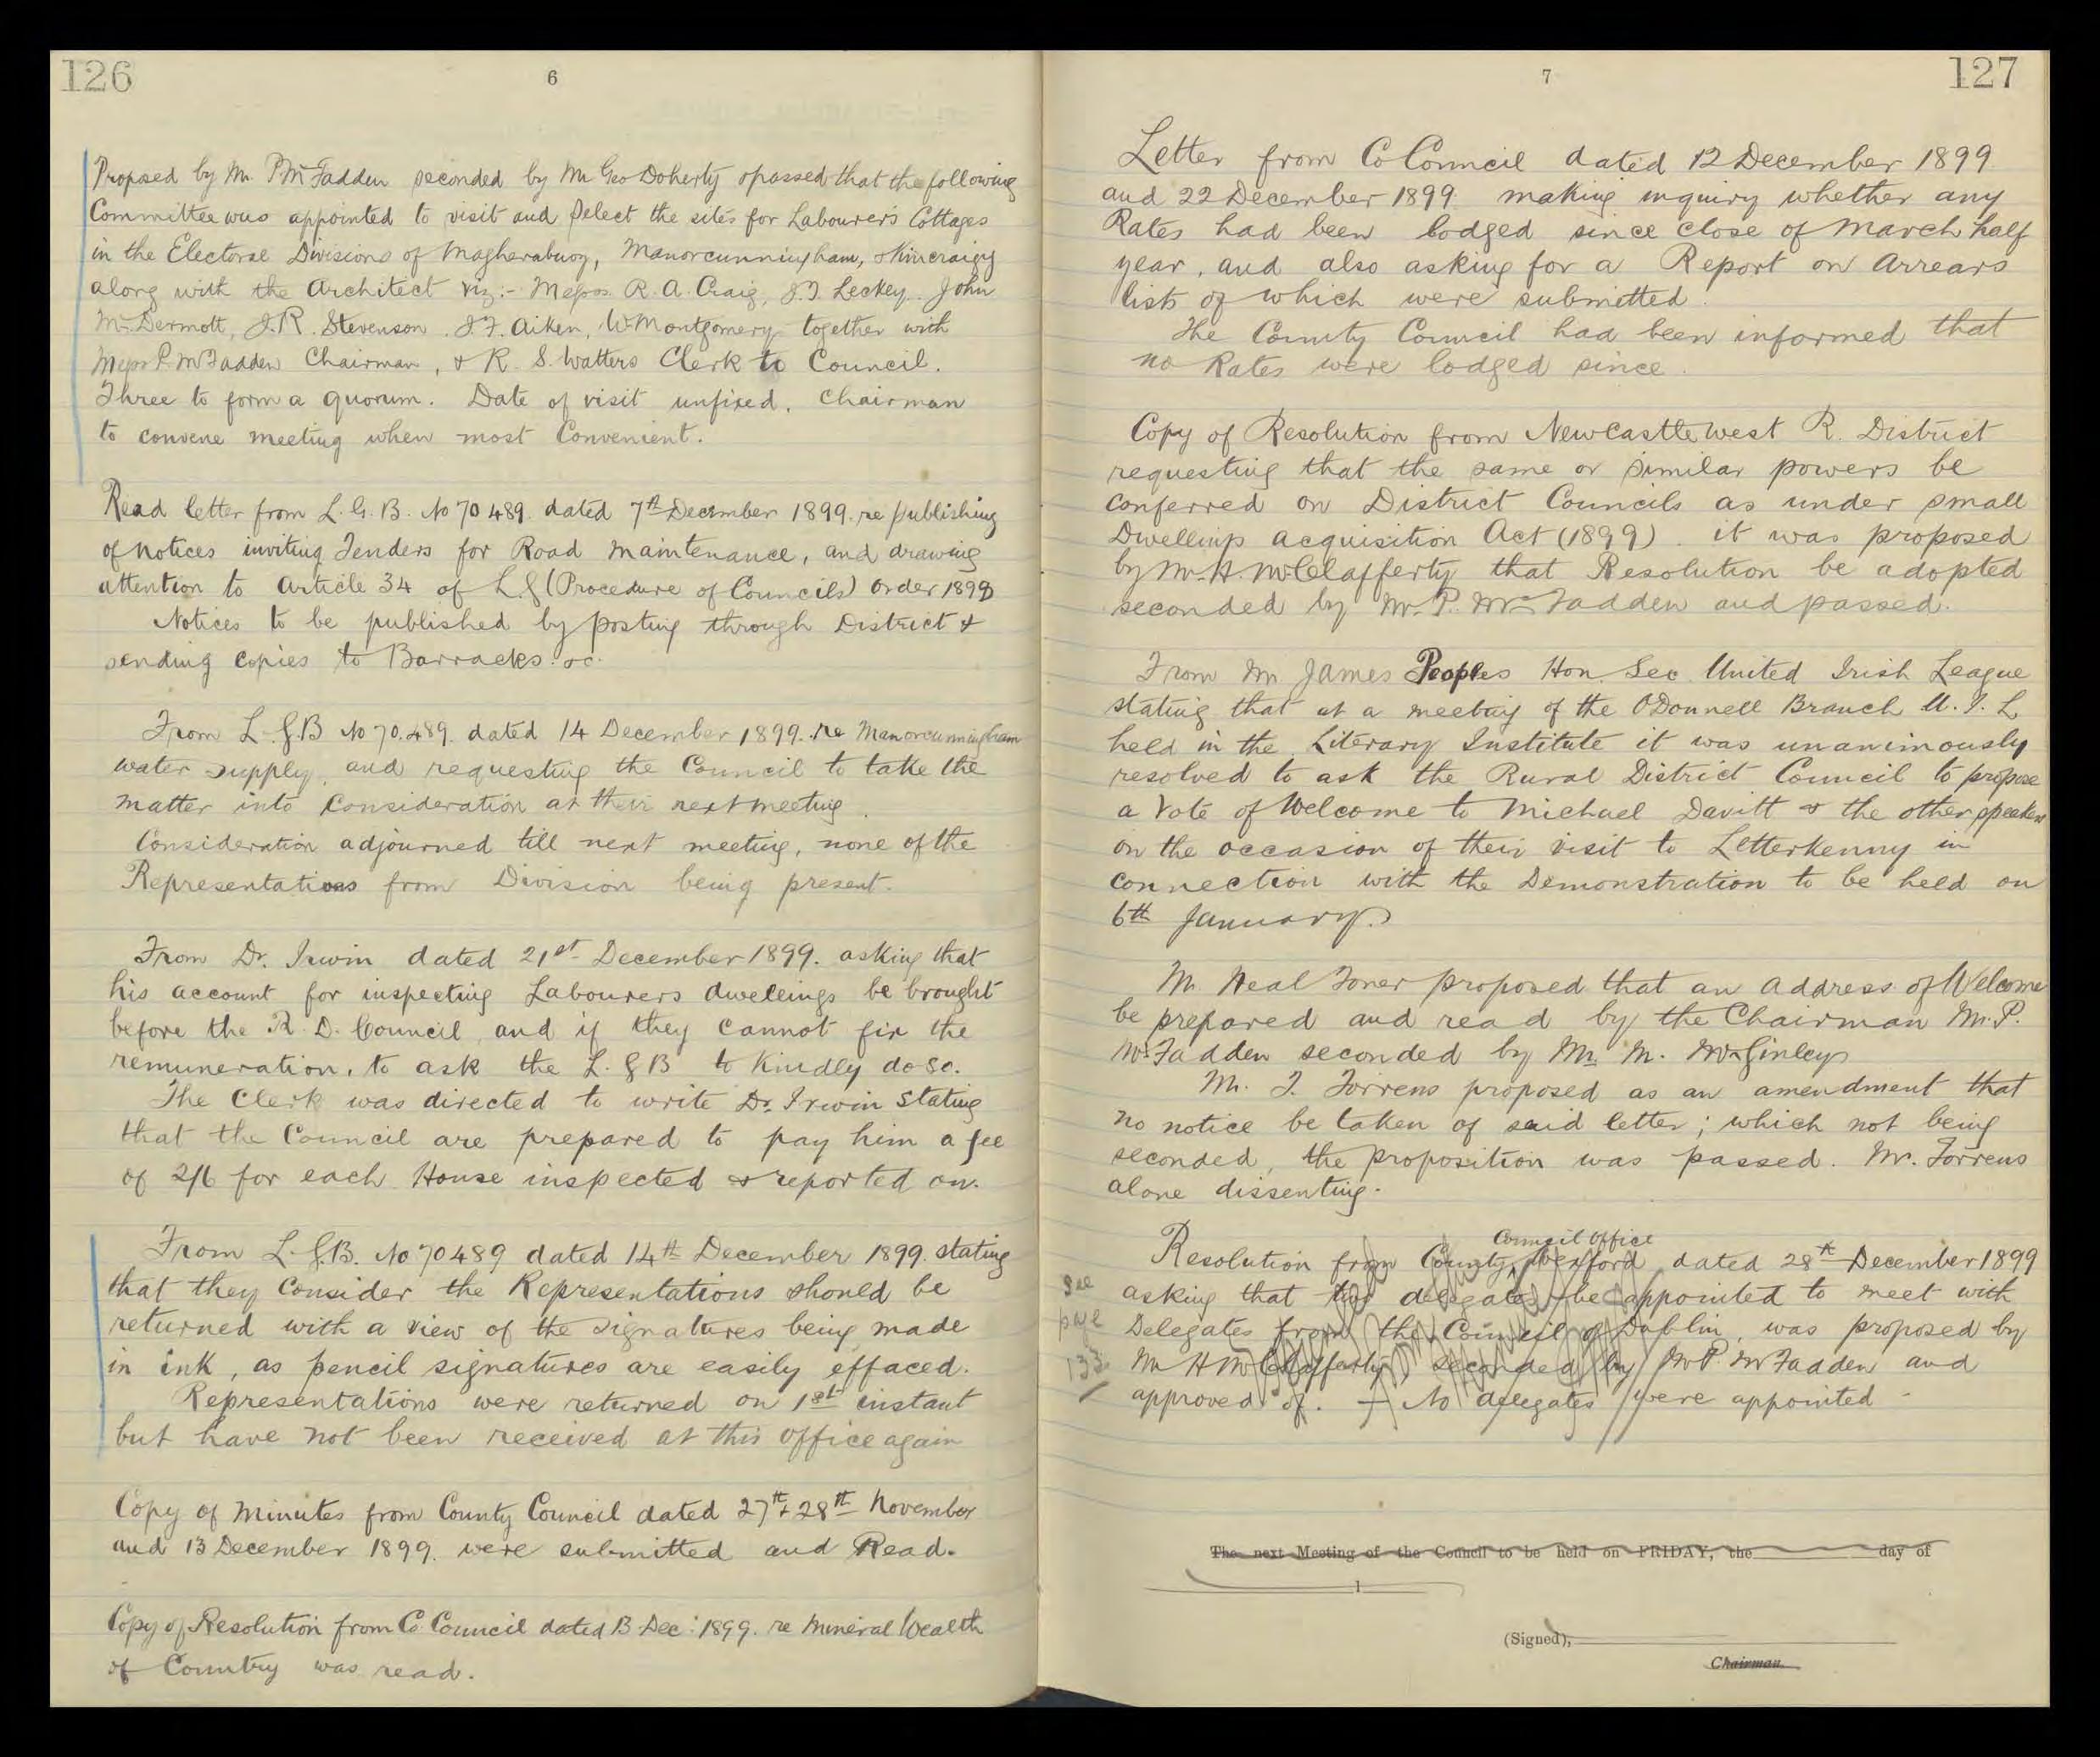 126
6
Proposed by Mr. P McFadden seconded by Mr Geo Doherty & passed that the following
Committee was appointed to visit and select the sites for Labourers Cottages
in the Electoral Divisions of Magheraboy, Manorcunningham, & Kincraigy
along with the Architect viz:- Messrs. R. A. Craig, J. T. Leckey. John
McDermott, J. R. Stevenson. J. F. Aiken, W. Montgomery together with
Messrs P. McFadden Chairman, & R. S. Watters Clerk to Council.
Three to form a quorum. Date of visit unfixed. Chairman
to convene meeting when most Convenient.
Read letter from L. G. B. No 70489. dated 7th December 1899. re publishing
of notices inviting Tenders for Road maintenance, and drawing
attention to Article 34 of L. G (Procedure of Councils) Order 1899
Notices to be published by posting through District &
sending copies to Barracks. &c.
From L. G. B No 70.489. dated 14 December 1899. re Manorcunningham
water supply, and requesting the Council to take the
matter into consideration at their next meeting.
Consideration adjourned till next meeting, none of the
Representatives from Division being present.
From Dr. Irwin dated 21st December 1899. asking that
his account for inspecting Labourers dwellings be brought
before the R. D. Council, and if they cannot fix the
remuneration, to ask the L. G B to kindly do so.
The Clerk was directed to write Dr. Irwin stating
that the Council are prepared to pay him a fee
of 2/6 for each House inspected & reported on.
From L. G. B. No 70489 dated 14th December 1899. stating
that they consider the Representations should be
returned with a view of the signatures being made
in ink, as pencil signatures are easily effaced.
Representations were returned on 1st instant
but have not been received at this office again
Copy of Minutes from County Council dated 27th & 28th November
and 13 December 1899. were submitted and Read.
Copy of Resolution from Co Council dated 13 Dec: 1899. re Mineral Wealth
of Country was read.
7
127
Letter from Co Council dated 12 December 1899
and 22 December 1899. making inquiry whether any
Rates had been lodged since close of March half
year, and also asking for a Report on Arrears
lists of which were submitted.
The County Council had been informed that
no Rates were lodged since.
Copy of Resolution from Newcastlewest R. District
requesting that the same or similar powers be
conferred on District Councils as under Small
Dwellings acquisition Act (1899). it was proposed
by Mr. H. McClafferty that Resolution be adopted
seconded by Mr. P. McFadden and passed.
From Mr James Peoples Hon. Sec. United Irish League
stating that at a meeting of the O'Donnell Branch U. I. L
held in the Literary Institute it was unanimously
resolved to ask the Rural District Council to propose
a Vote of Welcome to Michael Davitt & the other speakers
on the occasion of their visit to Letterkenny in
connection with the Demonstration to be held on
6th January.
Mr Neal Toner proposed that an address of Welcome
be prepared and read by the Chairman Mr. P.
McFadden seconded by Mr M. McGinley
Mr. T. Torrens proposed as an amendment that
no notice be taken of said letter; which not being
seconded, the proposition was passed. Mr. Torrens
alone dissenting.
Council Office
Resolution from County Wexford dated 28th December 1899
see
asking that two delegates be appointed to meet with
page
Delegates from the Council of Dublin, was proposed by
133
Mr H McClafferty seconded by Mr P. McFadden and
approved of. – No delegates were appointed –
The next Meeting of the Council to be held on FRIDAY, the day of
1
(Signed),
Chairman.